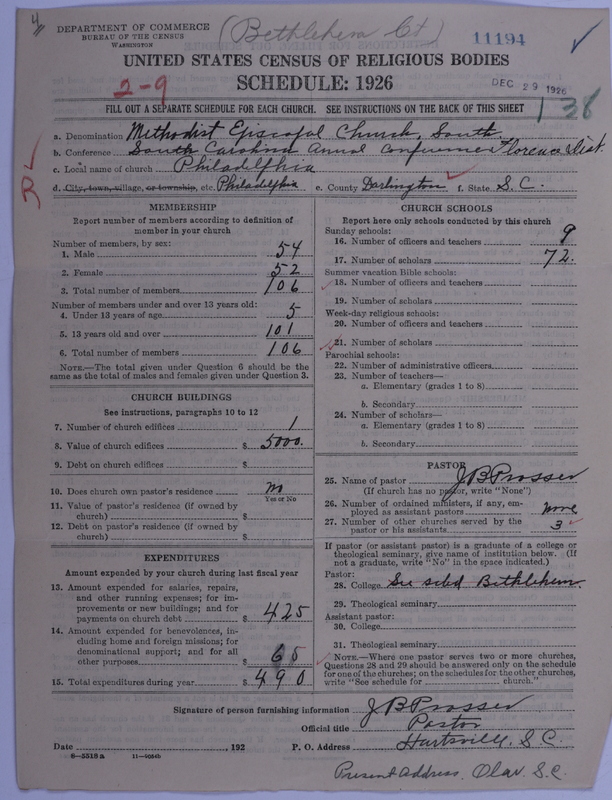 4
DEPARTMENT OF COMMERCE
BUREAU OF THE CENSUS
WASHINGTON
(Bethlehem Ct)
11194
UNITED STATES CENSUS OF RELIGIOUS BODIES
SCHEDULE: 1926
2-9
DEC 29 1926
138
FILL OUT A SEPARATE SCHEDULE FOR EACH CHURCH. SEE INSTRUCTIONS ON THE BACK OF THIS SHEET
a. Denomination Methodist Episcopal Church, South.
b. Conference South Carolina Annual Conference Florence Dist.
c. Local name of church Philadelphia
d. City, town, village, or township, etc. Philadelphia e. County Darlington f. State S.C.
R
MEMBERSHIP
Report number of members according to definition of
member in your church
Number of members, by sex:
1. Male 54
2. Female 52
3. Total number of members 106
Number of members under and over 13 years old:
4. Under 13 years of age 5
5. 13 years old and over 101
6. Total number of members 106
NOTE.—The total given under Question 6 should be the
same as the total of males and females given under Question 3.
CHURCH BUILDINGS
See instructions, paragraphs 10 to 12
7. Number of church edifices 1
8. Value of church edifices $ 5000.
9. Debt on church edifices $
10. Does church own pastor's residence no
Yes or No
11. Value of pastor's residence (if owned by
church) $
12. Debt on pastor's residence (if owned by
church) $
EXPENDITURES
Amount expended by your church during last fiscal year
13. Amount expended for salaries, repairs,
and other running expenses; for im-
provements or new buildings; and for
payments on church debt $ 425
14. Amount expended for benevolences, in-
cluding home and foreign missions; for
denominational support; and for all
other purposes $ 65
15. Total expenditures during year $ 490
CHURCH SCHOOLS
Report here only schools conducted by this church
Sunday schools:
16. Number of officers and teachers 9
17. Number of scholars 72
Summer vacation Bible schools:
18. Number of officers and teachers
19. Number of scholars
Week-day religious schools:
20. Number of officers and teachers
21. Number of scholars
Parochial schools:
22. Number of administrative officers
23. Number of teachers—
a. Elementary (grades 1 to 8)
b. Secondary
24. Number of scholars—
a. Elementary (grades 1 to 8)
b. Secondary
PASTOR
25. Name of pastor J B Prosser
(If church has no pastor, write "None")
26. Number of ordained ministers, if any, em-
ployed as assistant pastors none
27. Number of other churches served by the
pastor or his assistants 3
If pastor (or assistant pastor) is a graduate of a college or
theological seminary, give name of institution below. (If
not a graduate, write "No" in the space indicated.)
Pastor:
28. College See sched Bethlehem
29. Theological seminary
Assistant pastor:
30. College
31. Theological seminary
NOTE.—Where one pastor serves two or more churches,
Questions 28 and 29 should be answered only on the schedule
for one of the churches; on the schedules for the other churches,
write "See schedule for church."
Signature of person furnishing information J B Prosser
Official title Pastor
Date , 192 P. O. Address Hartsville, S.C.
8-5518a 11-9054b
Present address, Olar. S.C.